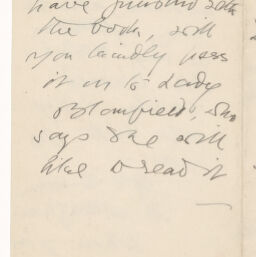 have finished with
the book, will
you kindly pass
it on to Lady
Blomfield, who
says she will
like to read it